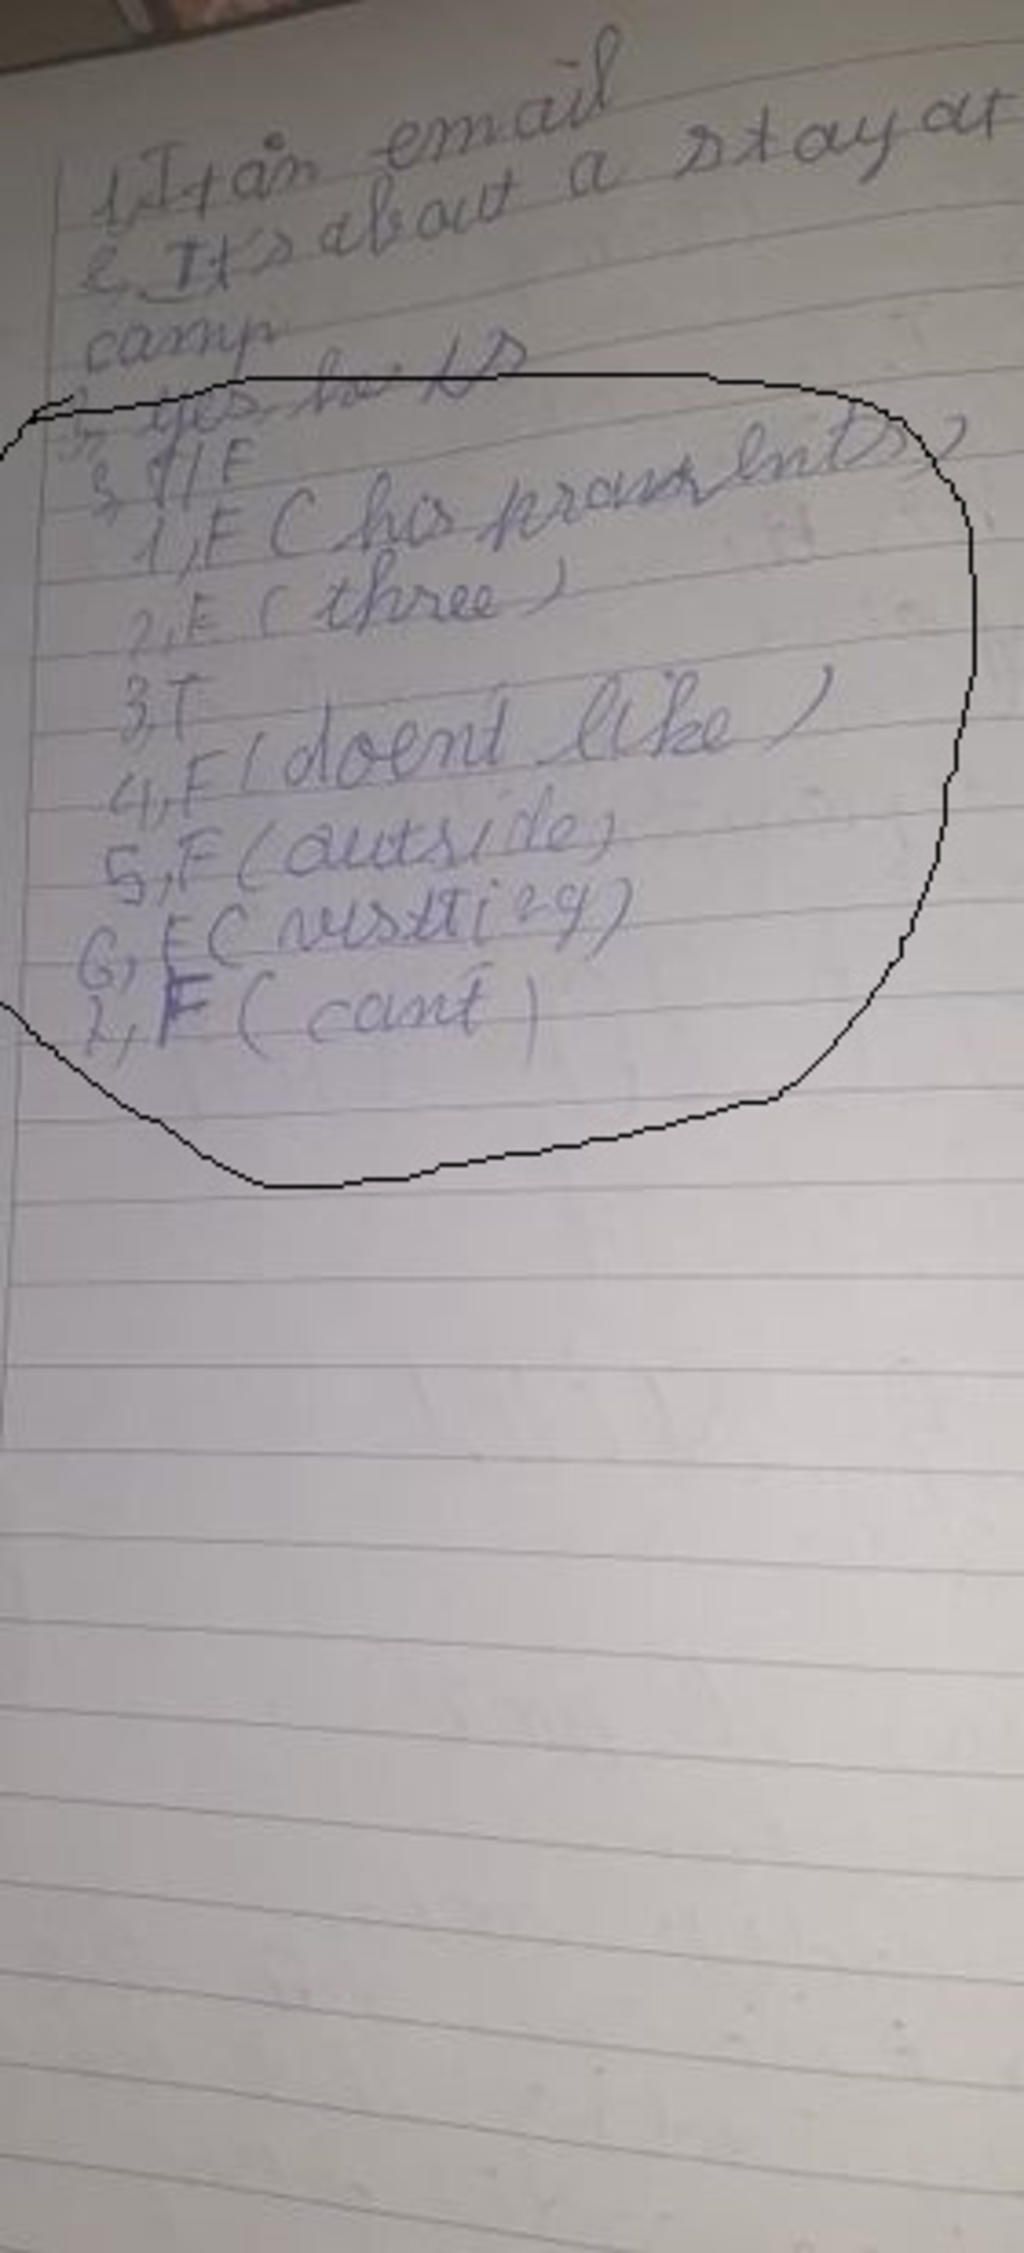 1, It an email
2, It's about a stay at
camp
3, yes, he is
3, T/F
1, F ( his
2, F ( three )
3, T
4, F ( doent like )
5, F ( outside )
6, F (
F ( cant )